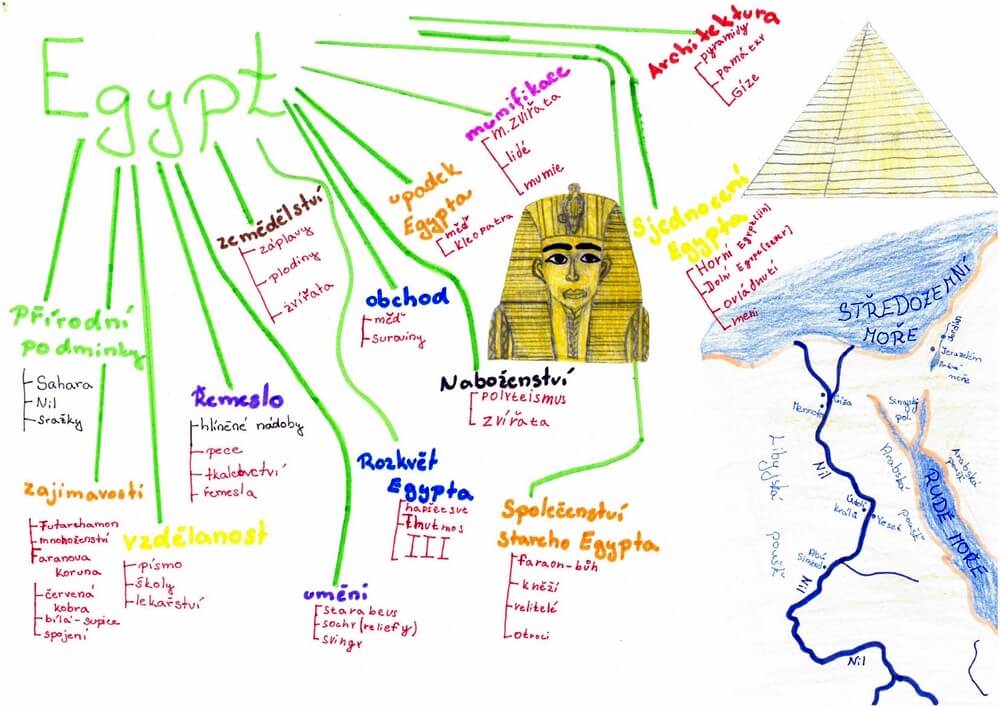 Egypt
Architektura
pyramidy
památky
Gíze
mumifikace
m. zvířata
lidé
mumie
úpadek
Egypta
měď
kleopatra
Sjednocení
Egypta
Horní Egypt(jih)
Dolní Egypt(sever)
ovládnutí
meni
zemědělství
záplavy
plodiny
zvířata
obchod
měď
suroviny
Náboženství
polyteismus
zvířata
Přírodní
podmínky
Sahara
Nil
srážky
Řemeslo
hliněné nádoby
pece
tkalcovství
řemesla
Rozkvět
Egypta
hapšetsve
Thutmos
III
zajímavosti
Tutanchamon
mnohoženství
Faranova
koruna
červená
kobra
bílá-supice
spojení
vzdělanost
písmo
školy
lekařství
umění
starabeus
sochy (reliefy)
svingy
Společenství
starého Egypta
faraon-bůh
kněží
velitelé
otroci
STŘEDOZEMNÍ
MOŘE
Jordán
Jeruzalém
Mrtvé
moře
Gíza
Sinajský
pol.
Libyjská poušť
Nil
Arabská poušť
Arabská
poušť
RUDÉ MOŘE
Údolí
králů
Abú
Simbel
Nil
Nil